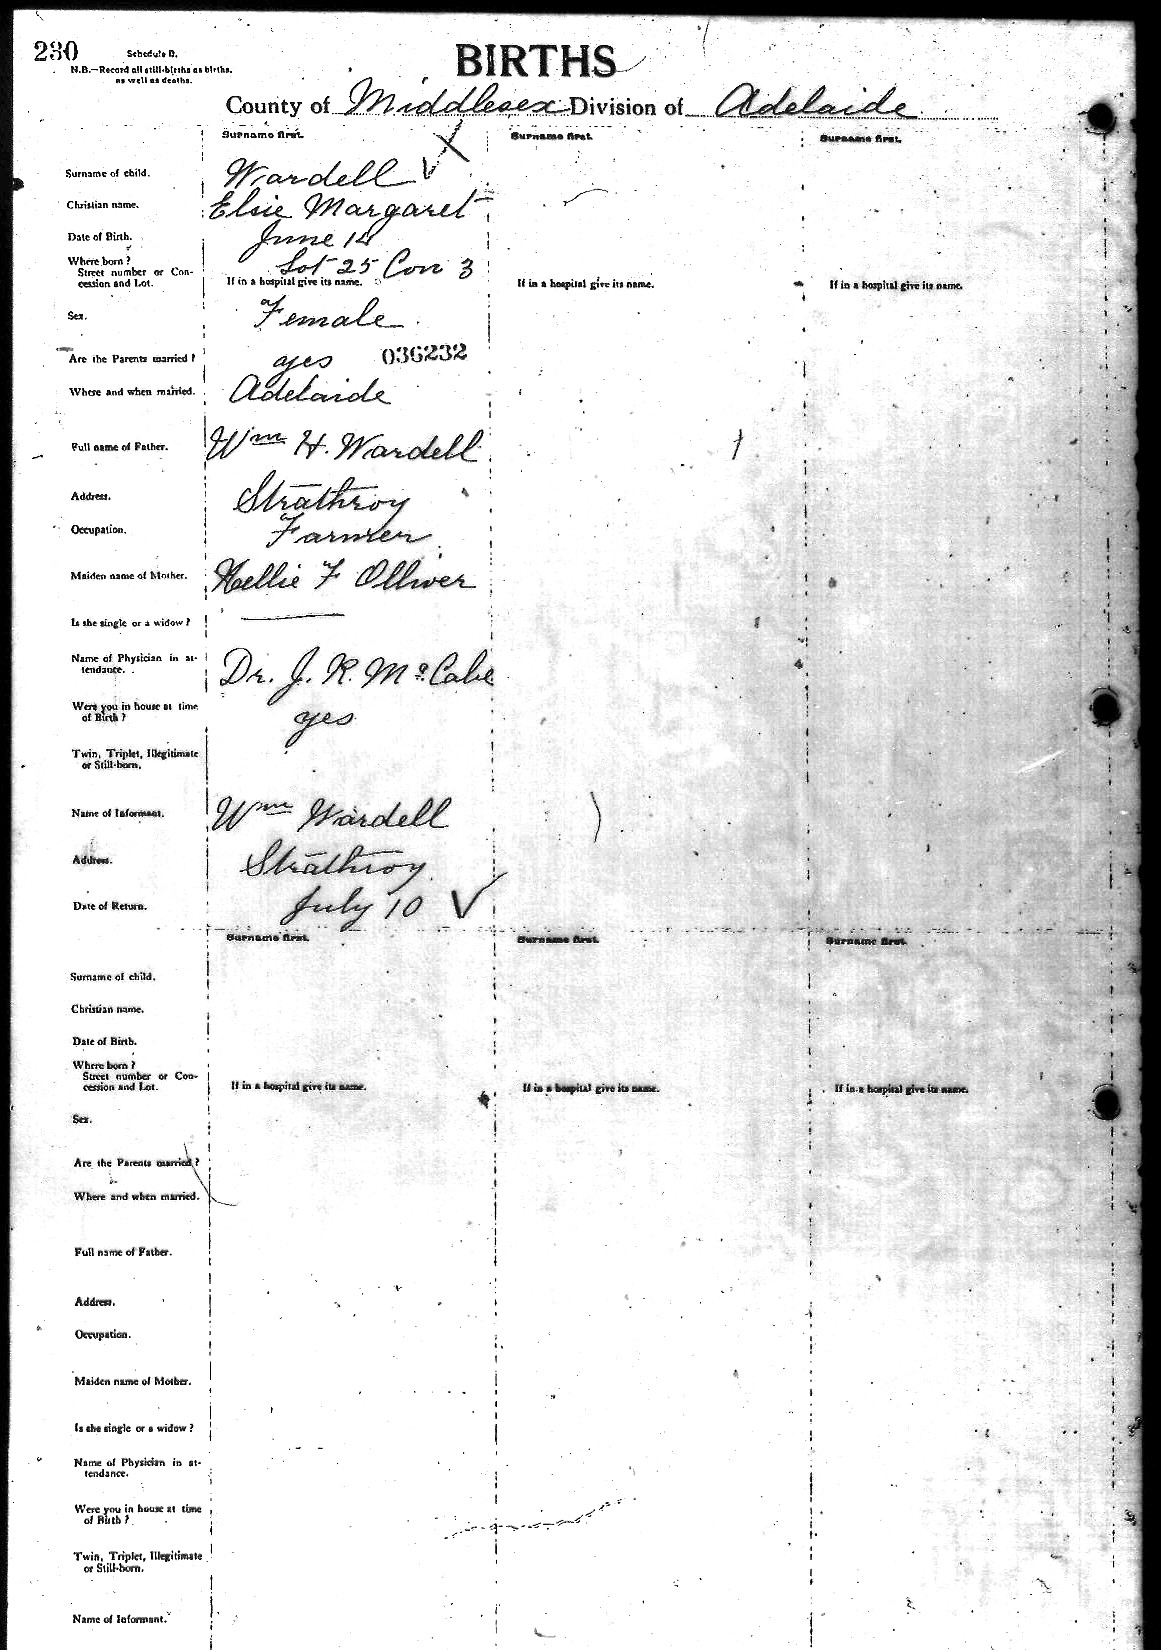 230
Schedule D.
N.B.—Record all still-births as births,
as well as deaths.
BIRTHS
County of Middlesex Division of Adelaide
Surname first. Surname first. Surname first.
Surname of child. Wardell
Christian name. Elsie Margaret
Date of Birth. June 14
Where born? Lot 25 Con 3
Street number or Con-
cession and Lot. If in a hospital give its name. If in a hospital give its name. If in a hospital give its name.
Sex. Female
Are the Parents married? yes 036232
Where and when married. Adelaide
Full name of Father. Wm H. Wardell
Address. Strathroy
Occupation. Farmer
Maiden name of Mother. Nellie F Olliver
Is she single or a widow? —
Name of Physician in at-
tendance. Dr. J. R. McCabe
Were you in house at time
of Birth? yes
Twin, Triplet, Illegitimate
or Still-born.
Name of Informant. Wm Wardell
Address. Strathroy
Date of Return. July 10
Surname first. Surname first. Surname first.
Surname of child.
Christian name.
Date of Birth.
Where born?
Street number or Con-
cession and Lot. If in a hospital give its name. If in a hospital give its name. If in a hospital give its name.
Sex.
Are the Parents married?
Where and when married.
Full name of Father.
Address.
Occupation.
Maiden name of Mother.
Is she single or a widow?
Name of Physician in at-
tendance.
Were you in house at time
of Birth?
Twin, Triplet, Illegitimate
or Still-born.
Name of Informant.